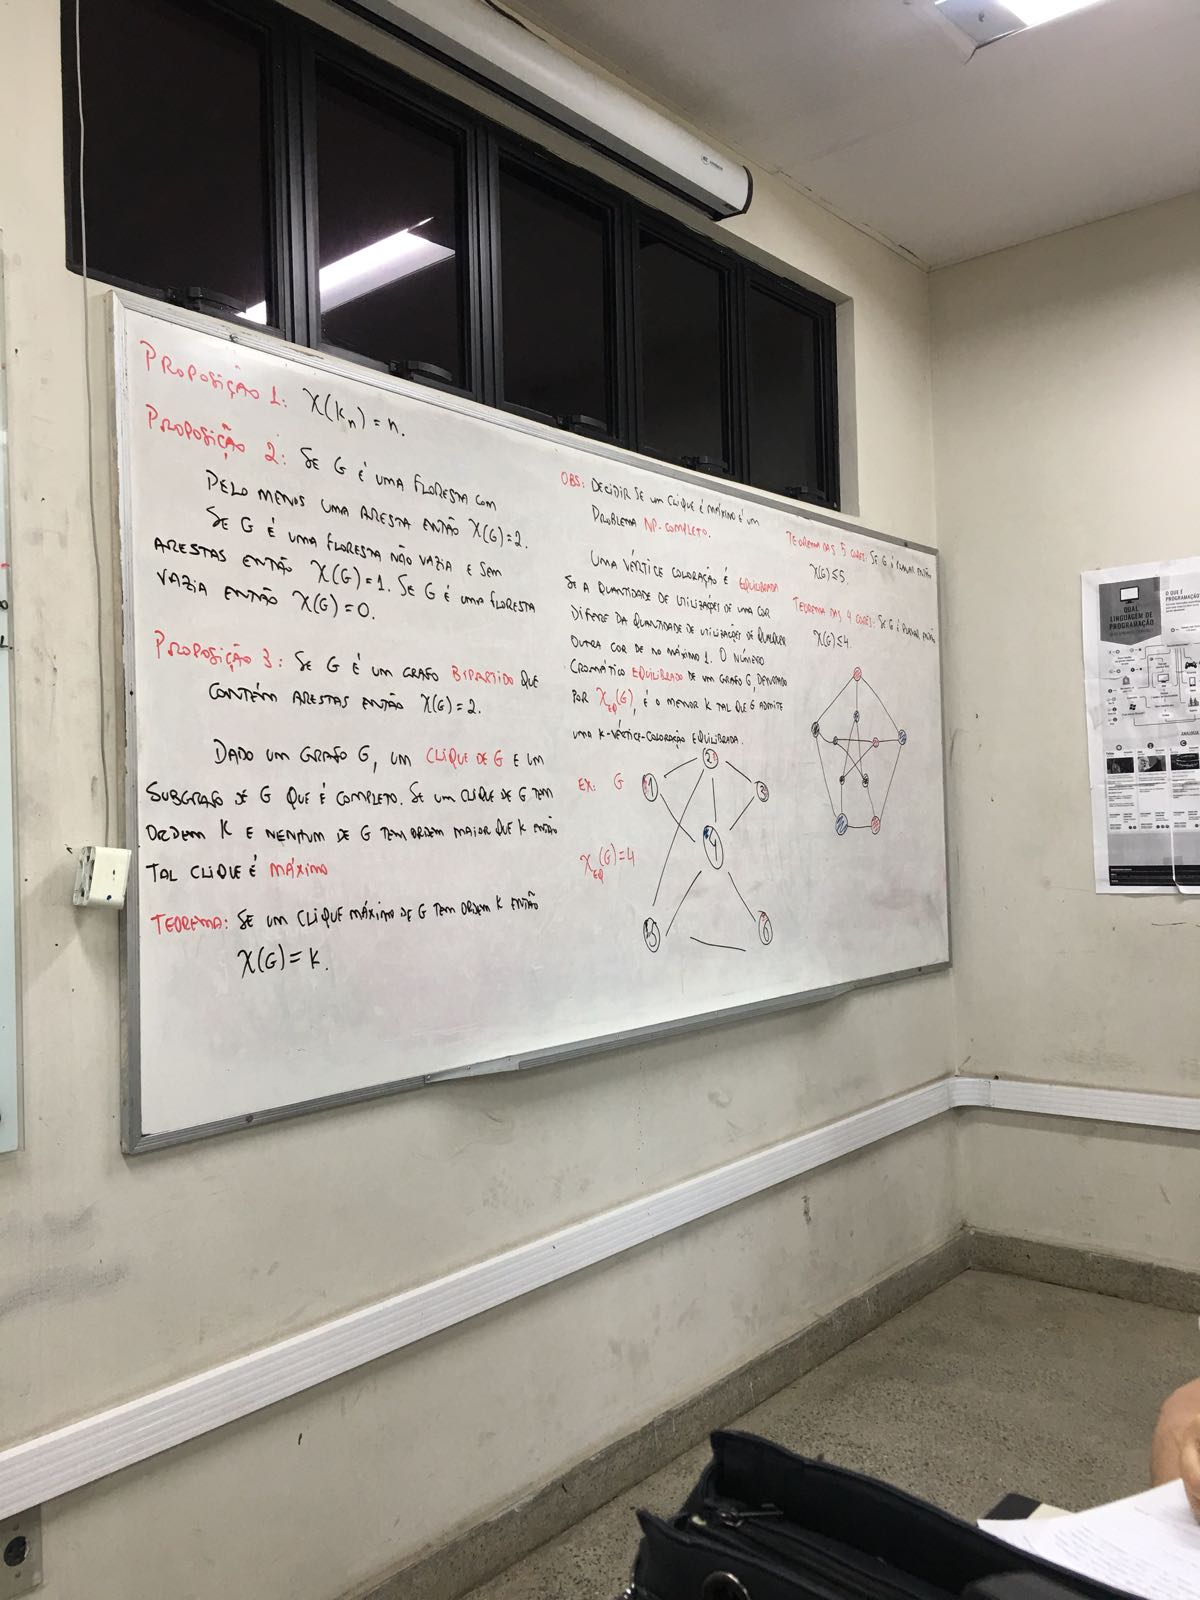 PROPOSIÇÃO 1: χ(Kn) = n.
PROPOSIÇÃO 2: SE G É UMA FLORESTA COM
PELO MENOS UMA ARESTA ENTÃO χ(G)=2.
SE G É UMA FLORESTA NÃO VAZIA E SEM
ARESTAS ENTÃO χ(G)=1. SE G É UMA FLORESTA
VAZIA ENTÃO χ(G)=0.
PROPOSIÇÃO 3: SE G É UM GRAFO BIPARTIDO QUE
CONTÉM ARESTAS ENTÃO χ(G)=2.
DADO UM GRAFO G, UM CLIQUE DE G E UM
SUBGRAFO DE G QUE É COMPLETO. SE UM CLIQUE DE G TEM
ORDEM K E NENHUM DE G TEM ORDEM MAIOR QUE K ENTÃO
TAL CLIQUE É MÁXIMO
TEOREMA: SE UM CLIQUE MÁXIMO DE G TEM ORDEM K ENTÃO
χ(G)=K.
OBS: DECIDIR SE UM CLIQUE É MÁXIMO É UM
PROBLEMA NP-COMPLETO.
UMA VÉRTICE COLORAÇÃO É EQUILIBRADA
SE A QUANTIDADE DE UTILIZAÇÕES DE UMA COR
DIFERE DA QUANTIDADE DE UTILIZAÇÕES DE QUALQUER
OUTRA COR DE NO MÁXIMO 1. O NÚMERO
CROMÁTICO EQUILIBRADO DE UM GRAFO G, DENOTADO
POR χEQ(G), É O MENOR K TAL QUE G ADMITE
UMA K-VÉRTICE-COLORAÇÃO EQUILIBRADA.
EX: G
1
2
3
4
5
6
χEQ(G)=4
TEOREMA DAS 5 CORES: SE G É PLANAR ENTÃO
χ(G)≤5.
TEOREMA DAS 4 CORES: SE G É PLANAR ENTÃO
χ(G)≤4.
QUAL
LINGUAGEM DE
PROGRAMAÇÃO
O QUE É
PROGRAMAÇÃO